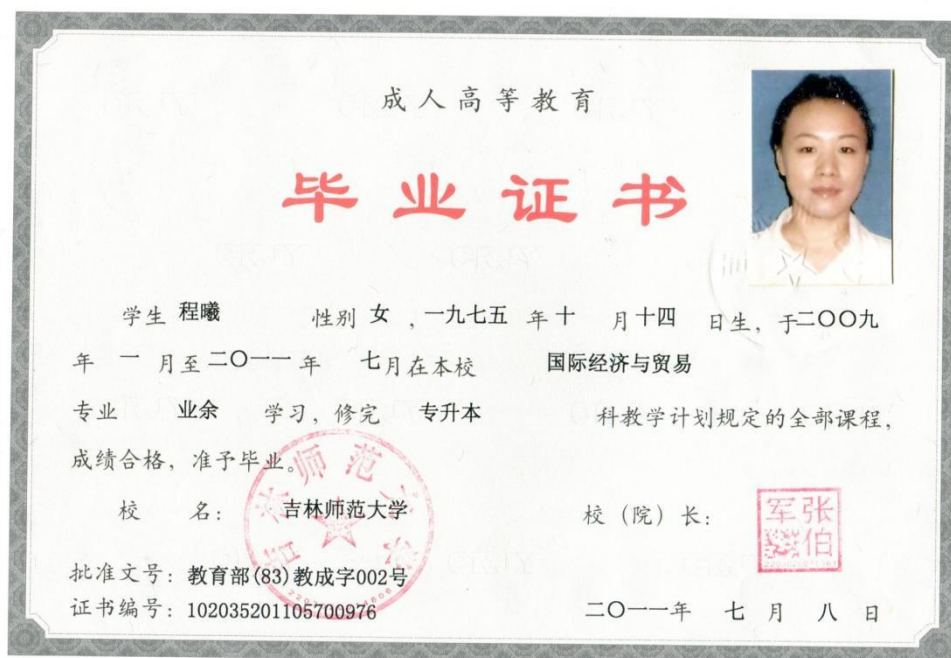 成人高等教育
毕业证书
学生 程曦 性别 女 ，一九七五 年 十 月 十四 日生，于二〇〇九
年 一 月至 二〇一一 年 七 月在本校 国际经济与贸易
专业 业余 学习，修完 专升本 科教学计划规定的全部课程，
成绩合格，准予毕业。
校 名： 吉林师范大学 校（院）长： 张伯军
批准文号：教育部(83)教成字002号
证书编号：102035201105700976 二〇一一年 七 月 八 日
吉林师范大学